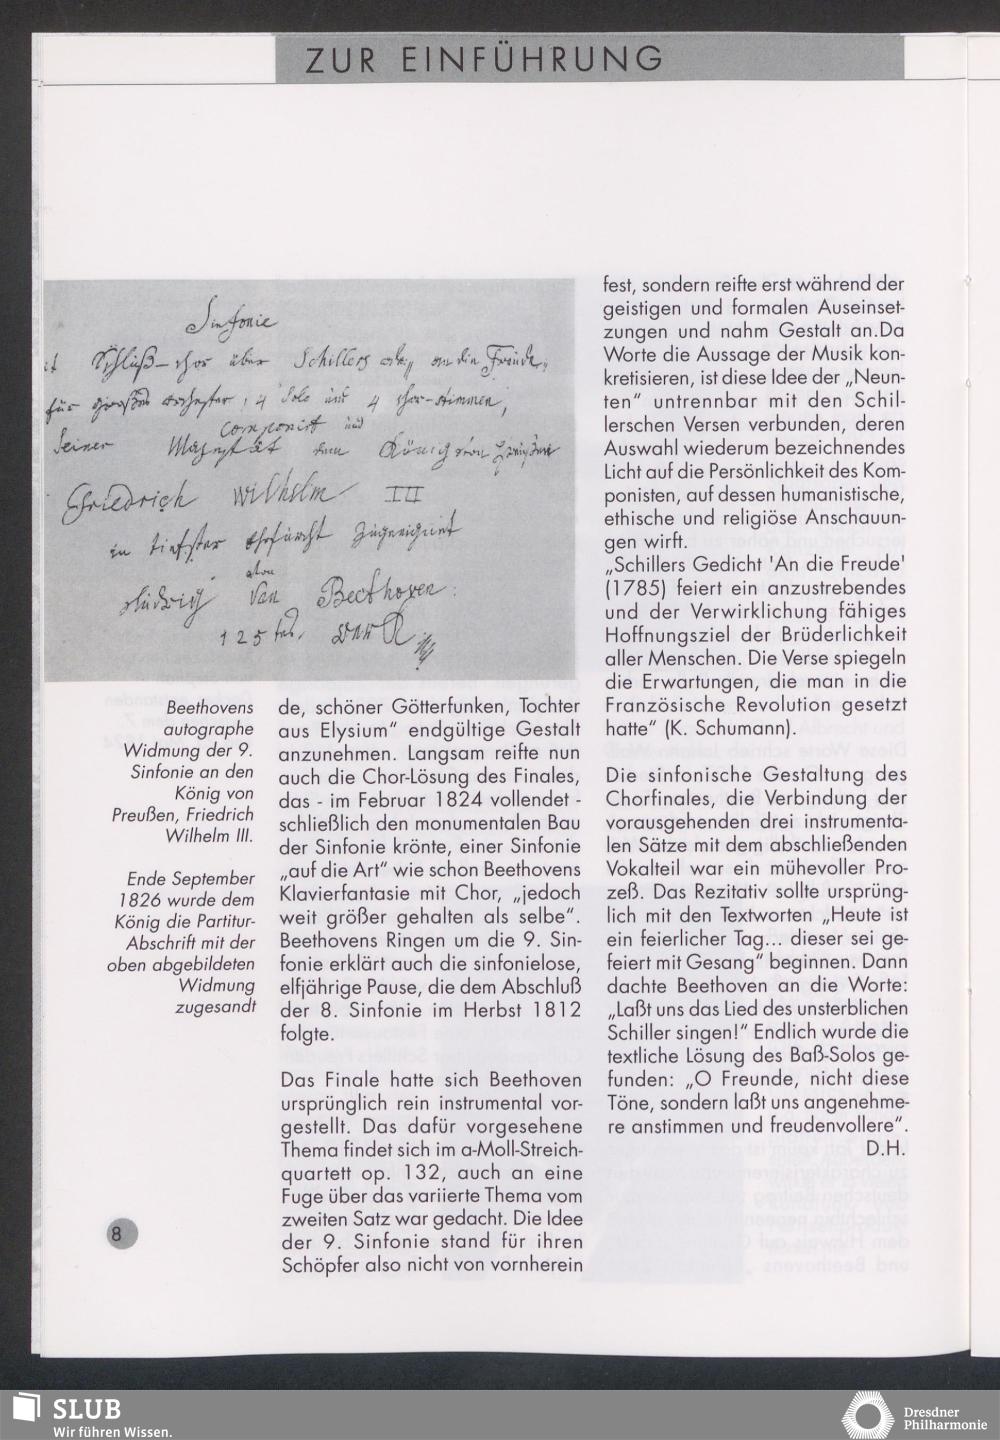 ZUR EINFÜHRUNG
Sinfonie
Schluß-chor über Schillers ode „an die Freude„
für großes orchester, 4 Solo und 4 chor-stimmen,
componirt und
Seiner Majestät dem König von Preußen
Friedrich Wilhelm III
in tiefster Ehrfurcht zugeeignet
von
Ludwig van Beethoven
125tes Werk
Beethovens
autographe
Widmung der 9.
Sinfonie an den
König von
Preußen, Friedrich
Wilhelm III.
Ende September
1826 wurde dem
König die Partitur-
Abschrift mit der
oben abgebildeten
Widmung
zugesandt
de, schöner Götterfunken, Tochter
aus Elysium“ endgültige Gestalt
anzunehmen. Langsam reifte nun
auch die Chor-Lösung des Finales,
das - im Februar 1824 vollendet -
schließlich den monumentalen Bau
der Sinfonie krönte, einer Sinfonie
„auf die Art“ wie schon Beethovens
Klavierfantasie mit Chor, „jedoch
weit größer gehalten als selbe“.
Beethovens Ringen um die 9. Sin-
fonie erklärt auch die sinfonielose,
elfjährige Pause, die dem Abschluß
der 8. Sinfonie im Herbst 1812
folgte.
Das Finale hatte sich Beethoven
ursprünglich rein instrumental vor-
gestellt. Das dafür vorgesehene
Thema findet sich im a-Moll-Streich-
quartett op. 132, auch an eine
Fuge über das variierte Thema vom
zweiten Satz war gedacht. Die Idee
der 9. Sinfonie stand für ihren
Schöpfer also nicht von vornherein
fest, sondern reifte erst während der
geistigen und formalen Auseinset-
zungen und nahm Gestalt an.Da
Worte die Aussage der Musik kon-
kretisieren, ist diese Idee der „Neun-
ten“ untrennbar mit den Schil-
lerschen Versen verbunden, deren
Auswahl wiederum bezeichnendes
Licht auf die Persönlichkeit des Kom-
ponisten, auf dessen humanistische,
ethische und religiöse Anschauun-
gen wirft.
„Schillers Gedicht 'An die Freude'
(1785) feiert ein anzustrebendes
und der Verwirklichung fähiges
Hoffnungsziel der Brüderlichkeit
aller Menschen. Die Verse spiegeln
die Erwartungen, die man in die
Französische Revolution gesetzt
hatte“ (K. Schumann).
Die sinfonische Gestaltung des
Chorfinales, die Verbindung der
vorausgehenden drei instrumenta-
len Sätze mit dem abschließenden
Vokalteil war ein mühevoller Pro-
zeß. Das Rezitativ sollte ursprüng-
lich mit den Textworten „Heute ist
ein feierlicher Tag... dieser sei ge-
feiert mit Gesang“ beginnen. Dann
dachte Beethoven an die Worte:
„Laßt uns das Lied des unsterblichen
Schiller singen!“ Endlich wurde die
textliche Lösung des Baß-Solos ge-
funden: „O Freunde, nicht diese
Töne, sondern laßt uns angenehme-
re anstimmen und freudenvollere“.
D.H.
8
SLUB
Wir führen Wissen.
Dresdner
Philharmonie